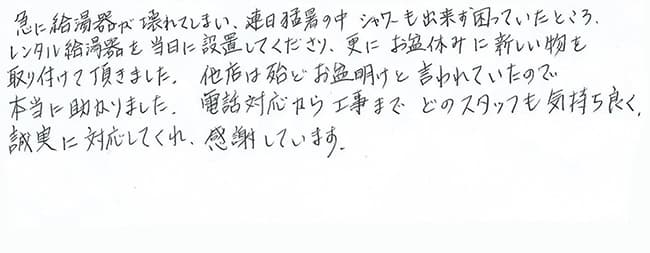 急に給湯器が壊れてしまい、連日猛暑の中 シャワーも出来ず困っていたところ、
レンタル給湯器を当日に設置してくださり、更に お盆休みに新しい物を
取り付けて頂きました。 他店は殆どお盆明けと言われていたので
本当に助かりました。 電話対応から工事まで どのスタッフも気持ち良く、
誠実に対応してくれ、感謝しています。